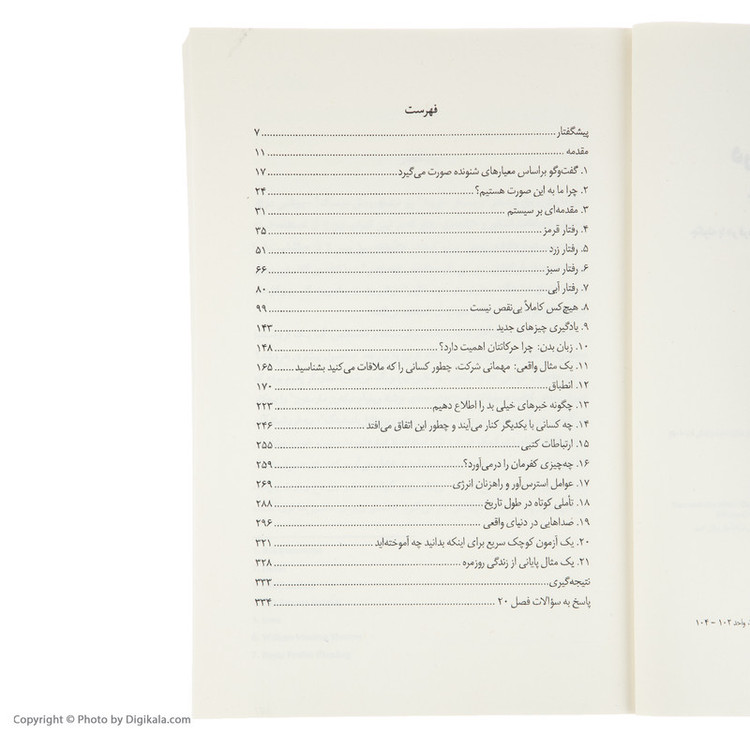 فهرست
پیشگفتار ۷
مقدمه ۱۱
۱. گفت‌وگو براساس معیارهای شنونده صورت می‌گیرد ۱۷
۲. چرا ما به این صورت هستیم؟ ۲۴
۳. مقدمه‌ای بر سیستم ۳۱
۴. رفتار قرمز ۳۵
۵. رفتار زرد ۵۱
۶. رفتار سبز ۶۶
۷. رفتار آبی ۸۰
۸. هیچ‌کس کاملاً بی‌نقص نیست ۹۹
۹. یادگیری چیزهای جدید ۱۴۳
۱۰. زبان بدن: چرا حرکاتتان اهمیت دارد؟ ۱۴۸
۱۱. یک مثال واقعی: مهمانی شرکت، چطور کسانی را که ملاقات می‌کنید بشناسید ۱۶۵
۱۲. انطباق ۱۷۰
۱۳. چگونه خبرهای خیلی بد را اطلاع دهیم ۲۲۳
۱۴. چه کسانی با یکدیگر کنار می‌آیند و چطور این اتفاق می‌افتد ۲۴۶
۱۵. ارتباطات کتبی ۲۵۵
۱۶. چه‌چیزی کفرمان را درمی‌آورد؟ ۲۵۹
۱۷. عوامل استرس‌آور و راهزنان انرژی ۲۶۹
۱۸. تأملی کوتاه در طول تاریخ ۲۸۸
۱۹. صداهایی در دنیای واقعی ۲۹۶
۲۰. یک آزمون کوچک سریع برای اینکه بدانید چه آموخته‌اید ۳۲۱
۲۱. یک مثال پایانی از زندگی روزمره ۳۲۸
نتیجه‌گیری ۳۳۳
پاسخ به سؤالات فصل ۲۰ ۳۳۴
واحد ۱۰۲ – ۱۰۴
Copyright © Photo by Digikala.com